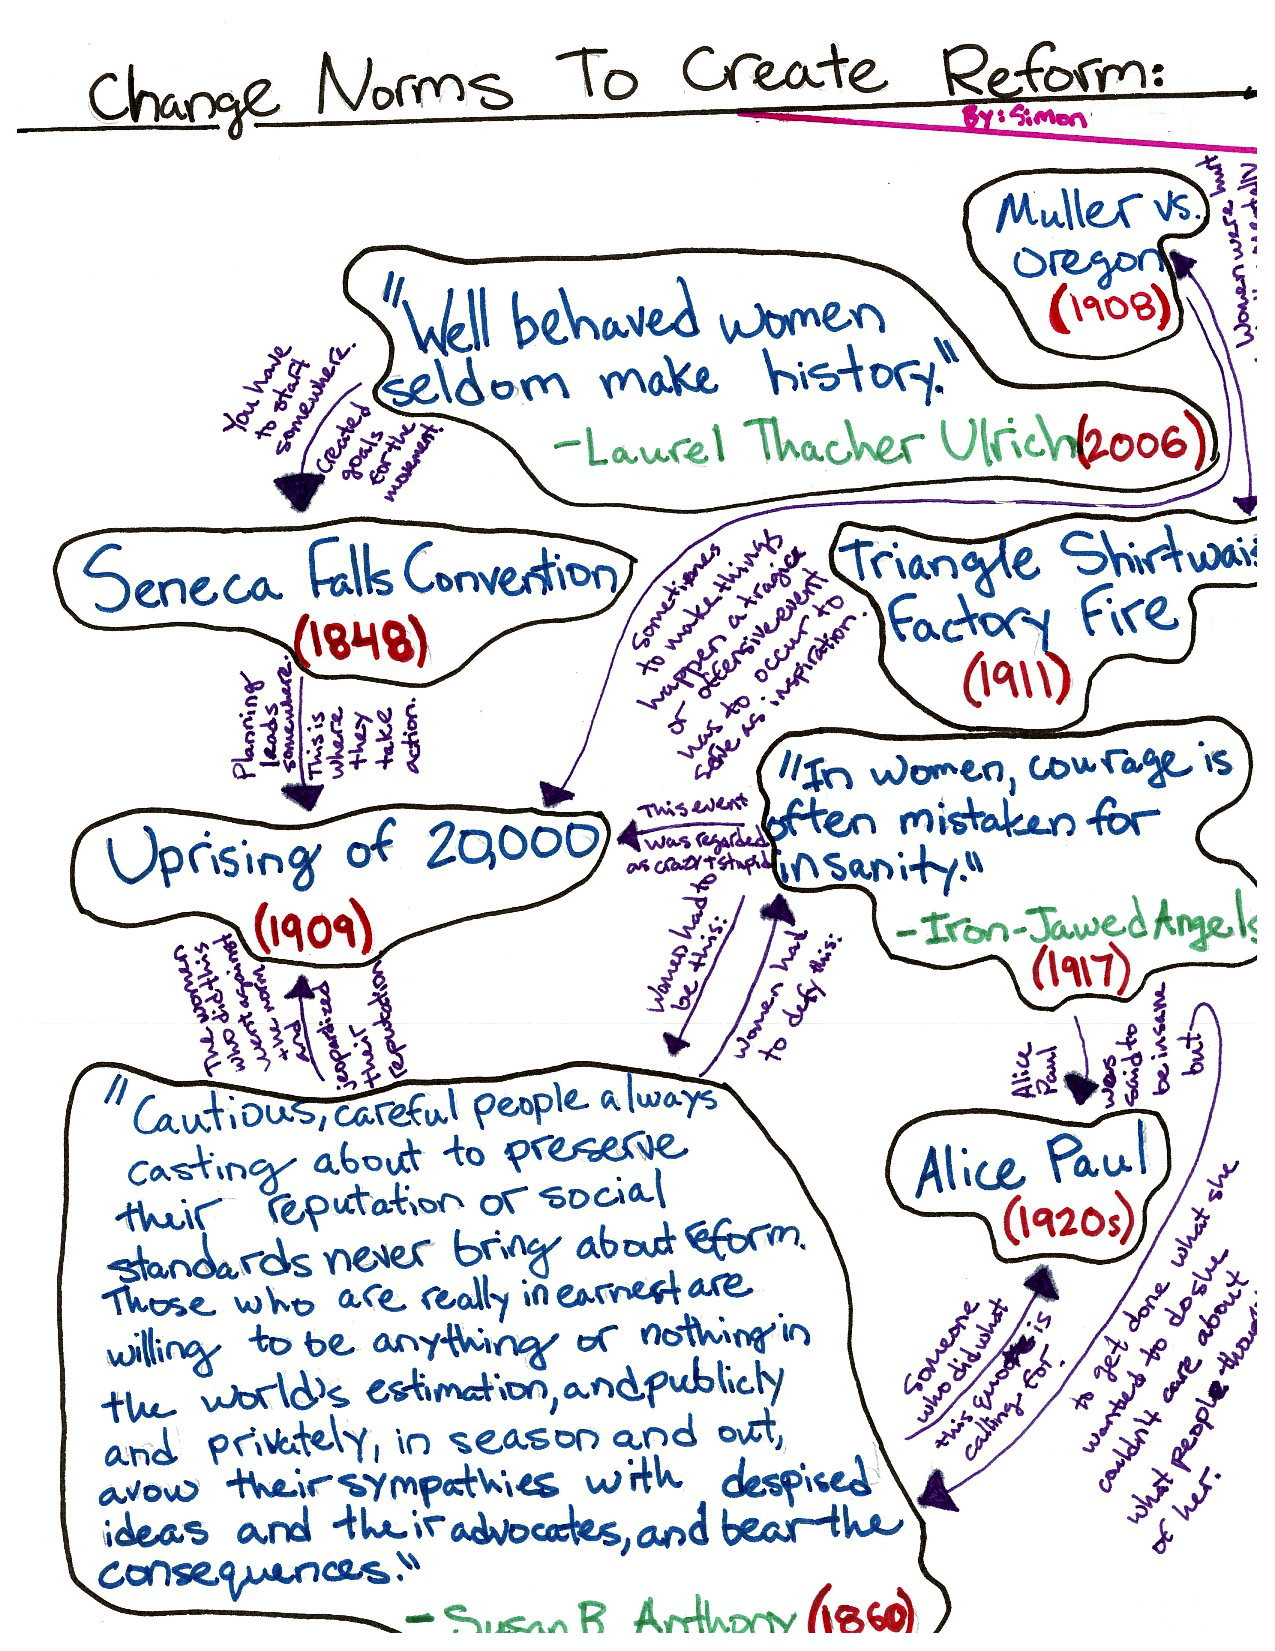 Change Norms To Create Reform:
By: Simon
Muller vs.
Oregon
(1908)
Women were hurt
"Well behaved women
seldom make history."
-Laurel Thacher Ulrich (2006)
You have
to start
somewhere.
Created
goals
for the
movement.
Seneca Falls Convention
(1848)
Sometimes
to make things
happen a tragic
or offensive event
has to occur to
serve as inspiration.
Triangle Shirtwais
Factory Fire
(1911)
Planning
leads
somewhere.
This is
where
they
take
action.
Uprising of 20,000
(1909)
This event
was regarded
as crazy + stupid
"In women, courage is
often mistaken for
insanity."
-Iron-Jawed Angels
(1917)
The women
who did this
went against
the norm
and
jeopardized
their
reputation
Women had to
be this:
Women had
to defy this:
Alice
Paul
was
said to
be insane
but
Alice Paul
(1920s)
"Cautious, careful people always
casting about to preserve
their reputation or social
standards never bring about reform.
Those who are really in earnest are
willing to be anything or nothing in
the world's estimation, and publicly
and privately, in season and out,
avow their sympathies with despised
ideas and their advocates, and bear the
consequences."
-Susan B Anthony (1860)
Someone
who did what
this quote is
calling for.
to get done what she
wanted to do she
couldn't care about
what people though
of her.